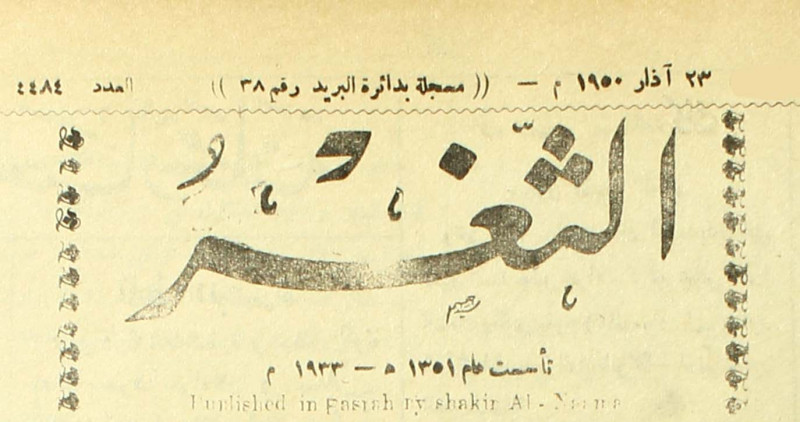 ٢٣ آذار ١٩٥٠ م — (( مسجلة بدائرة البريد رقم ٣٨ )) العدد ٤٤٨٤
الثَّغْرُ
تأسست عام ١٣٥١ ه — ١٩٣٣ م
Published in Basrah by shakir Al-